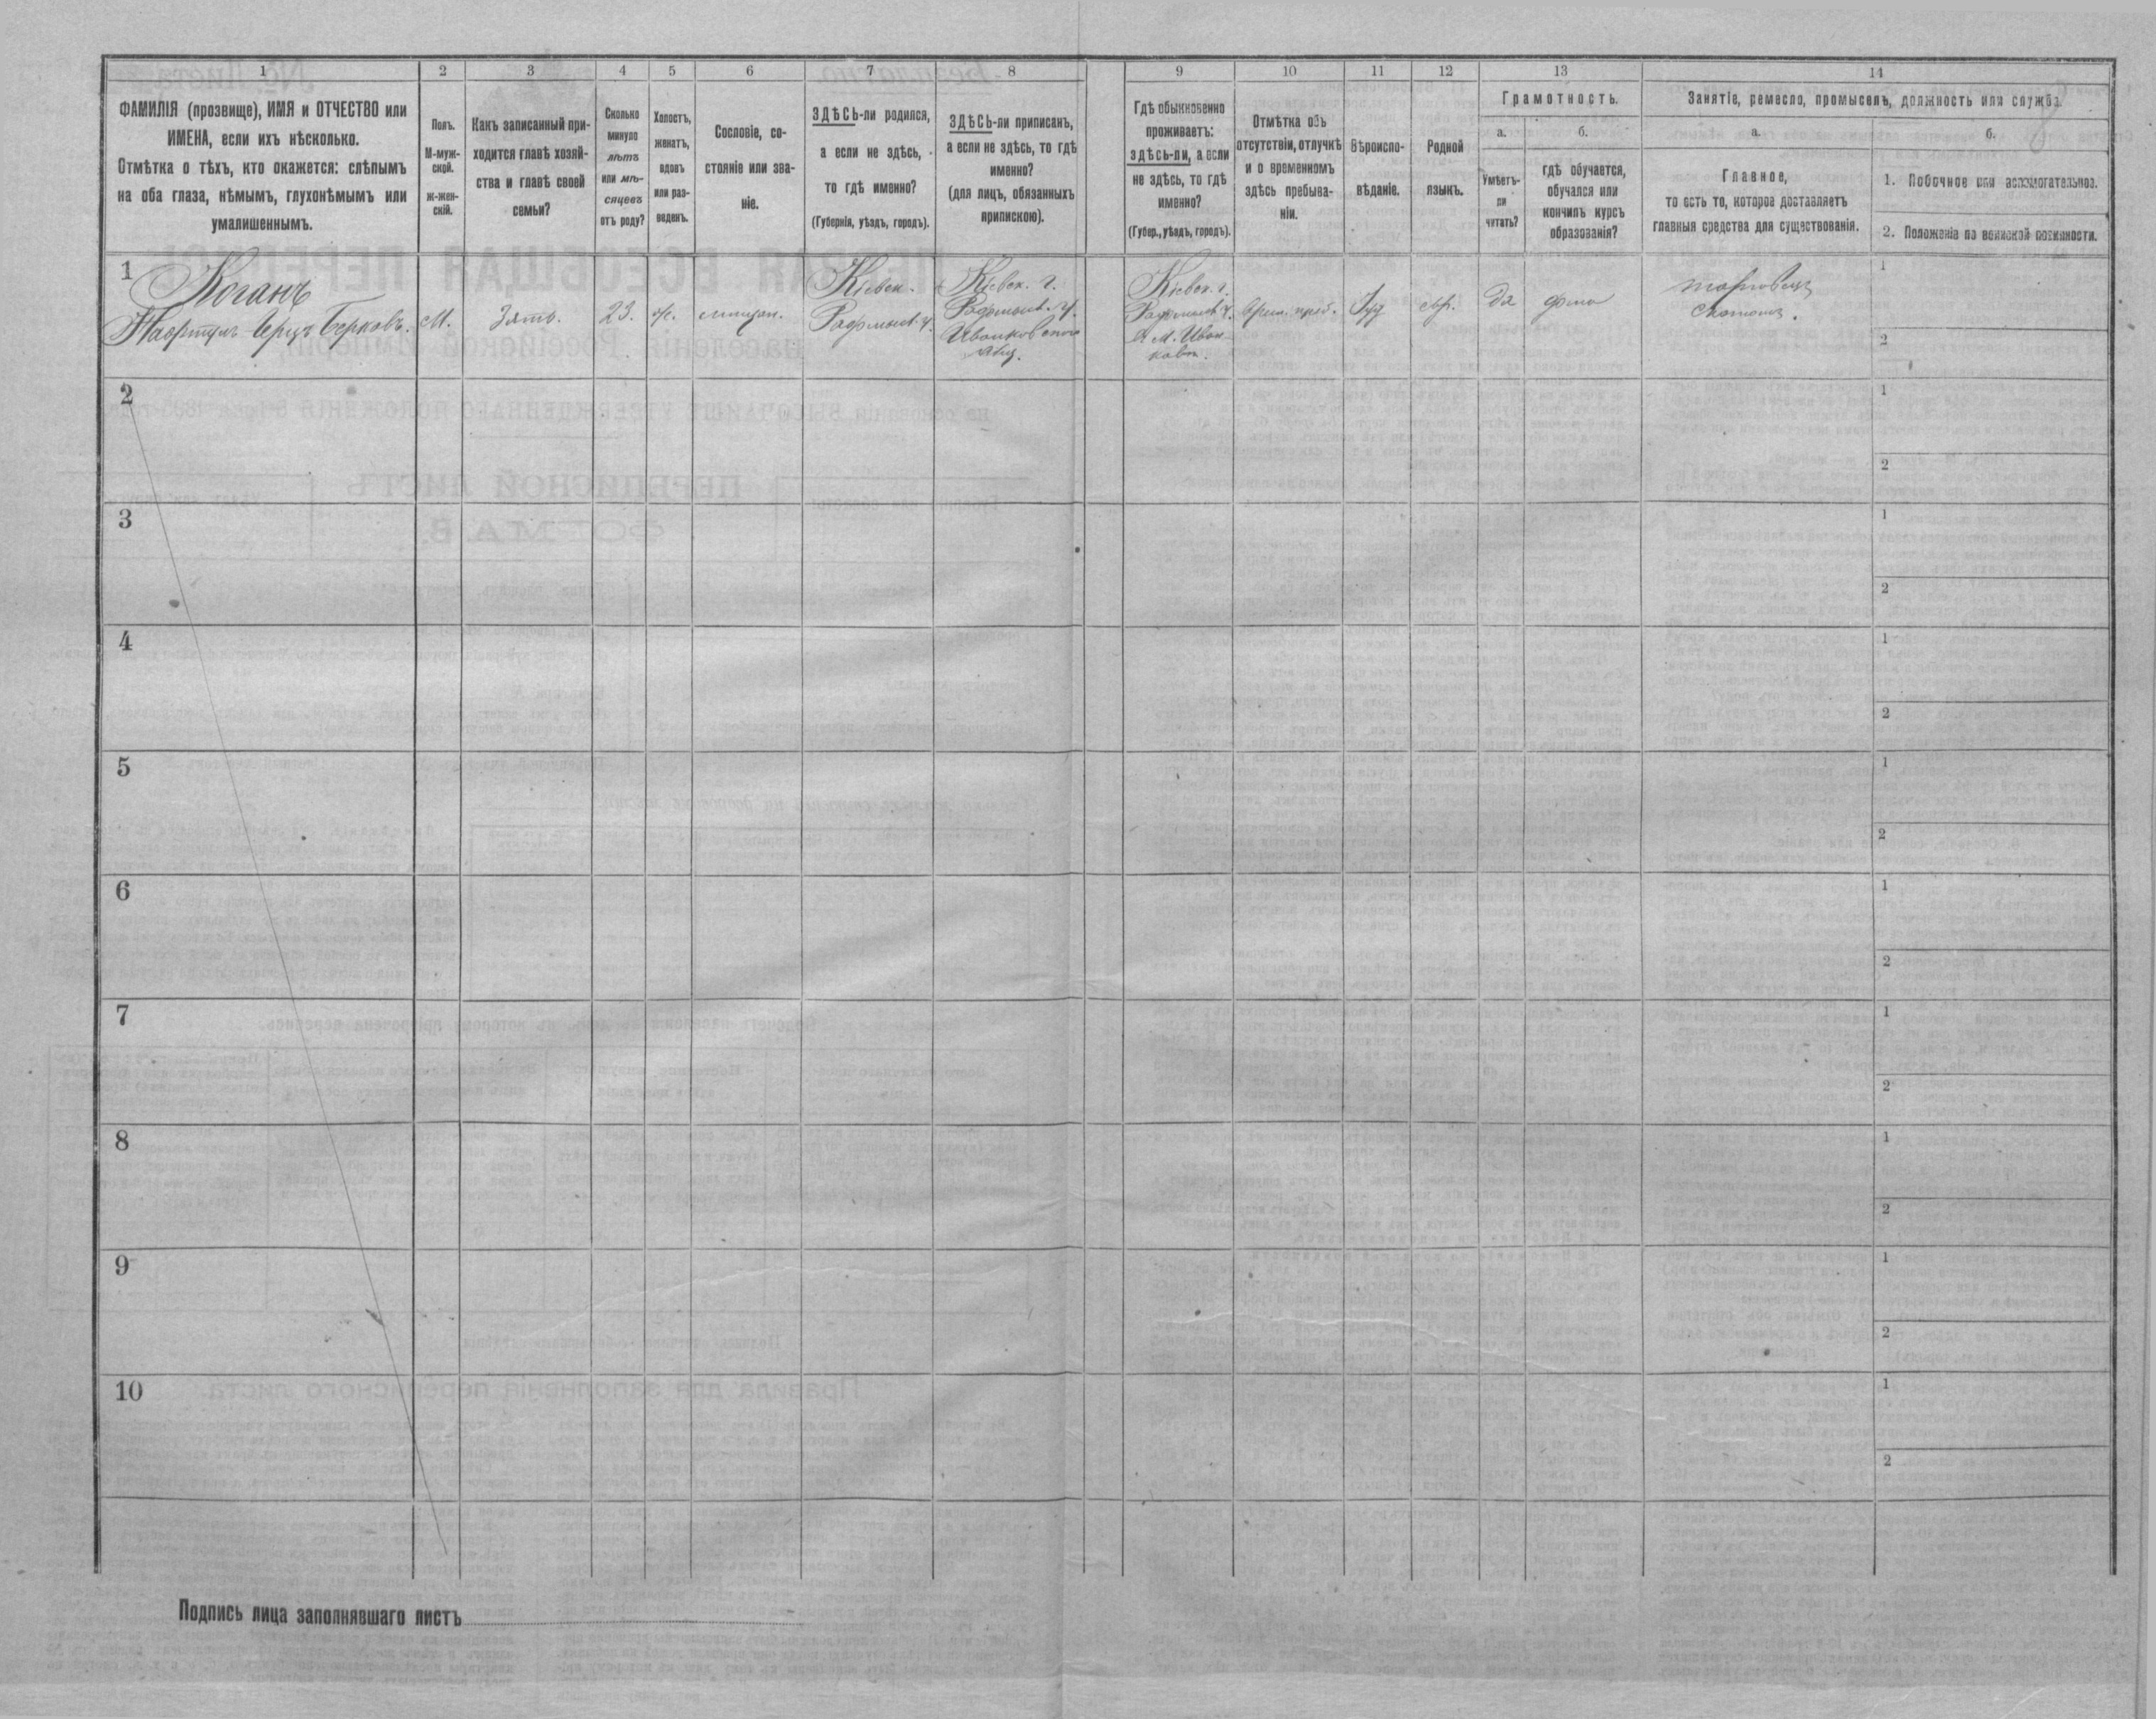 1
ФАМИЛІЯ (прозвище), ИМЯ и ОТЧЕСТВО или
ИМЕНА, если ихъ нѣсколько.
Отмѣтка о тѣхъ, кто окажется: слѣпымъ
на оба глаза, нѣмымъ, глухонѣмымъ или
умалишеннымъ.
2
Полъ.
М-муж-
ской.
ж-жен-
скій.
3
Какъ записанный при-
ходится главѣ хозяй-
ства и главѣ своей
семьи?
4
Сколько
минуло
лѣтъ
или мѣ-
сяцевъ
отъ роду?
5
Холостъ,
женатъ,
вдовъ
или раз-
веденъ.
6
Сословіе, со-
стояніе или зва-
ніе.
7
ЗДѢСЬ-ли родился,
а если не здѣсь,
то гдѣ именно?
(Губернія, уѣздъ, городъ).
8
ЗДѢСЬ-ли приписанъ,
а если не здѣсь, то гдѣ
именно?
(для лицъ, обязанныхъ
припискою).
9
Гдѣ обыкновенно
проживаетъ:
здѣсь-ли, а если
не здѣсь, то гдѣ
именно?
(Губер., уѣздъ, городъ).
10
Отмѣтка объ
отсутствіи, отлучкѣ
и о временномъ
здѣсь пребыва-
ніи.
11
Вѣроиспо-
вѣданіе.
12
Родной
языкъ.
13
Грамотность.
а.
Умѣетъ-
ли
читать?
б.
гдѣ обучается,
обучался или
кончилъ курсъ
образованія?
14
Занятіе, ремесло, промыселъ, должность или служба.
а.
Главное,
то есть то, которое доставляетъ
главныя средства для существованія.
б.
1. Побочное или вспомогательное.
2. Положеніе по воинской повинности.
1
Коганъ
Берковъ.
М.
Зять.
23.
ж.
мищан.
Кіевск.
Радомысл. у.
Кіевск. г.
Радомысл. у.
Кіевск. г.
Радомысл. у.
врем. преб.
Іуд
евр.
да
дома
торговецъ
скотомъ.
1
2
2
1
2
3
1
2
4
1
2
5
1
2
6
1
2
7
1
2
8
1
2
9
1
2
10
1
2
Подпись лица заполнявшаго листъ